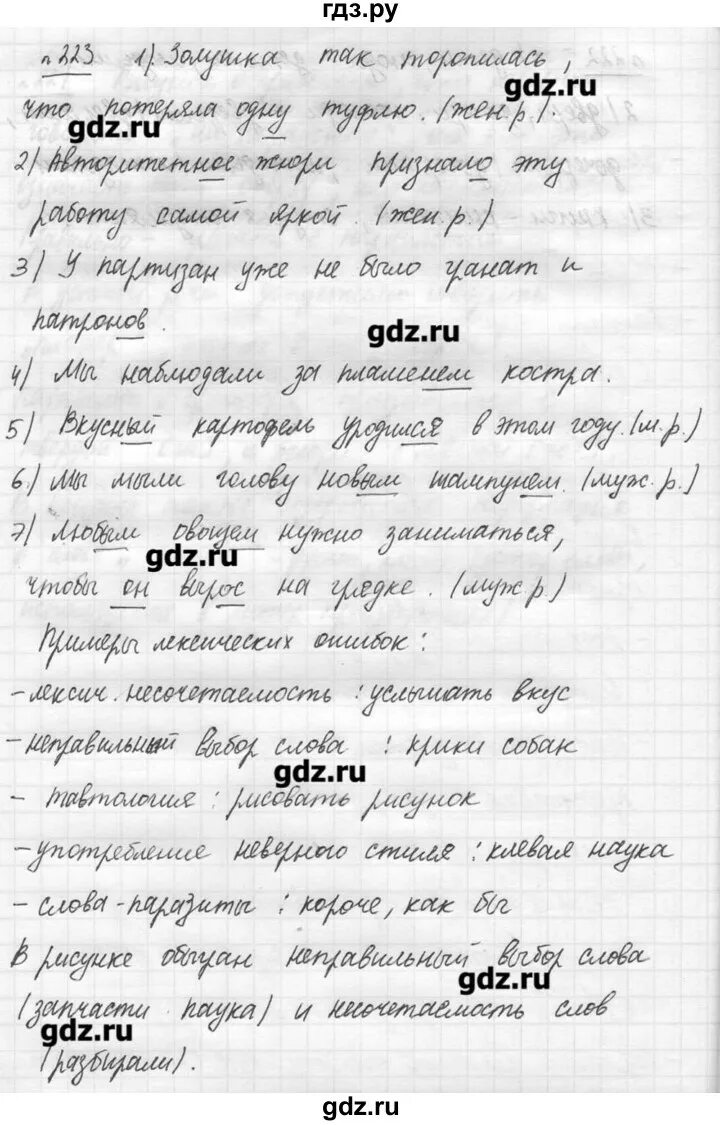 гдз.ру
n 223 1) Золушка так торопилась,
gdz.ru
что потеряла одну туфлю. (жен. р.).
gdz.ru
2) Авторитетное жюри признало эту
работу самой яркой. (жен. р.)
3) У партизан уже не было гранат и
патронов.
gdz.ru
4) Мы наблюдали за пламенем костра.
5) Вкусный картофель уродился в этом году. (м. р.)
6.) Мы мыли голову новым шампунем. (муж. р.)
7) Любым овощем нужно заниматься,
gdz.ru
чтобы он вырос на грядке. (муж р.)
Примеры лексических ошибок:
- лексич. несочетаемость : услышать вкус
- неправильный выбор слова : крики собак
gdz.ru
- тавтология : рисовать рисунок
- употребление неверного стиля : клевая наука
- слова-паразиты : короче, как бы
В рисунке обыгран неправильный выбор слова
gdz.ru
(запчасти паука) и несочетаемость слов
gdz.ru
(разбирали).
gdz.ru